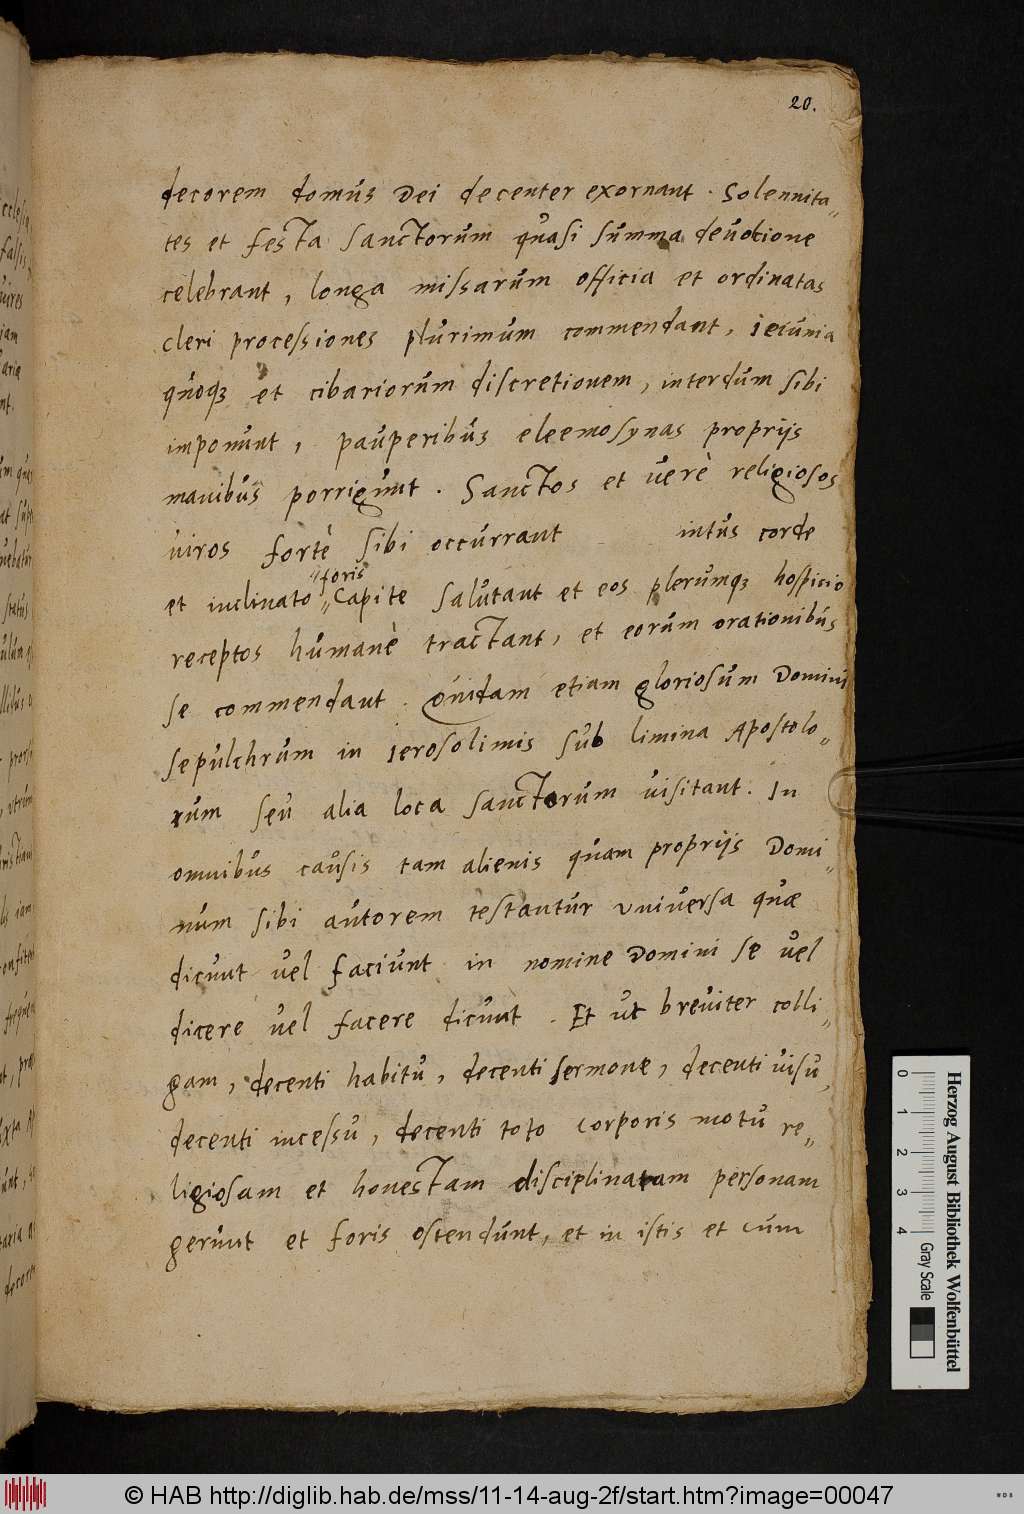 20.
decorem domus Dei decenter exornant. Solennita„
tes et festa sanctorum quasi summa devotione
celebrant, longa missarum officia et ordinatas
cleri processiones plurimum commendant, ieiunia
quoqꝫ et cibariorum discretionem, interdum sibi
imponunt, pauperibus eleemosynas proprijs
manibus porrigunt. Sanctos et verè religiosos
viros fortè sibi occurrant intus corde
et inclinato „foris„ Capite salutant et eos plerumqꝫ hospicio
receptos humanè tractant, et eorum orationibus
se commendant. Quidam etiam gloriosum Domini
sepulchrum in Ierosolimis sub limina Apostolo„
rum seu alia loca sanctorum visitant. In
omnibus causis tam alienis quam proprijs Domi„
num sibi autorem testantur universa quæ
dicunt vel faciunt in nomine Domini se vel
dicere vel facere dicunt. Et ut breviter colli„
gam, decenti habitu, decenti sermone, decenti visu,
decenti incessu, decenti toto corporis motu re„
ligiosam et honestam disciplinatam personam
gerunt et foris ostendunt, et in istis et cum
Herzog August Bibliothek Wolfenbüttel
0 1 2 3 4
Gray Scale
© HAB http://diglib.hab.de/mss/11-14-aug-2f/start.htm?image=00047